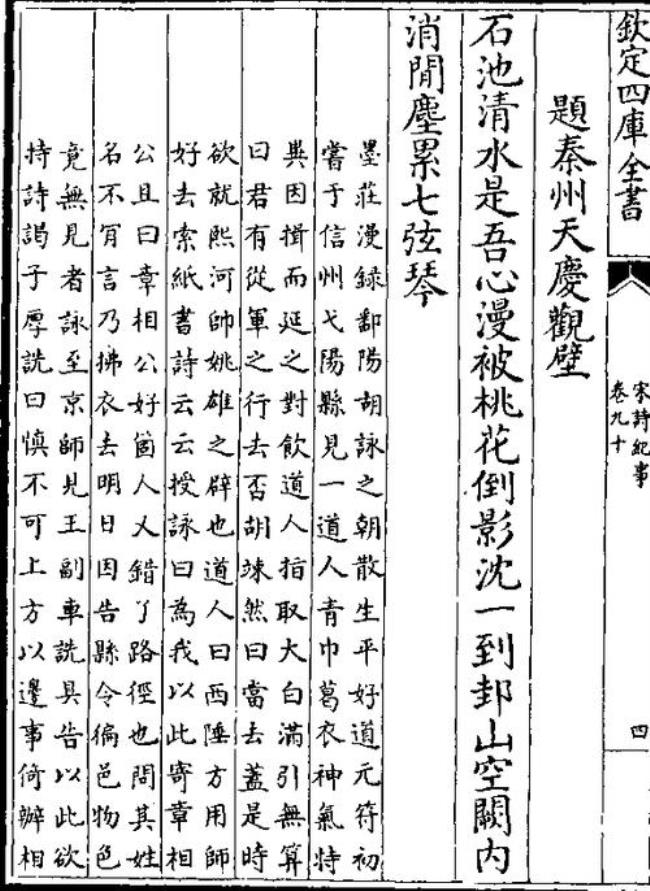 欽定四庫全書
宋詩紀事
卷九十
四
題秦州天慶觀壁
石池清水是吾心漫被桃花倒影沈一到邽山空闕内
消閒塵累七弦琴
墨莊漫録鄱陽胡詠之朝散生平好道元符初
嘗于信州弋陽縣見一道人青巾葛衣神氣特
異因揖而延之對飲道人指取大白滿引無算
曰君有從軍之行去否胡竦然曰當去葢是時
欲就熙河帥姚雄之辟也道人曰西陲方用師
好去索紙書詩云云授詠曰為我以此寄章相
公且曰章相公好箇人又錯了路徑也問其姓
名不肎言乃拂衣去明日因告縣令徧邑物色
竟無見者詠至京師見王副車詵具告以此欲
持詩謁子厚詵曰慎不可上方以邊事倚辦相